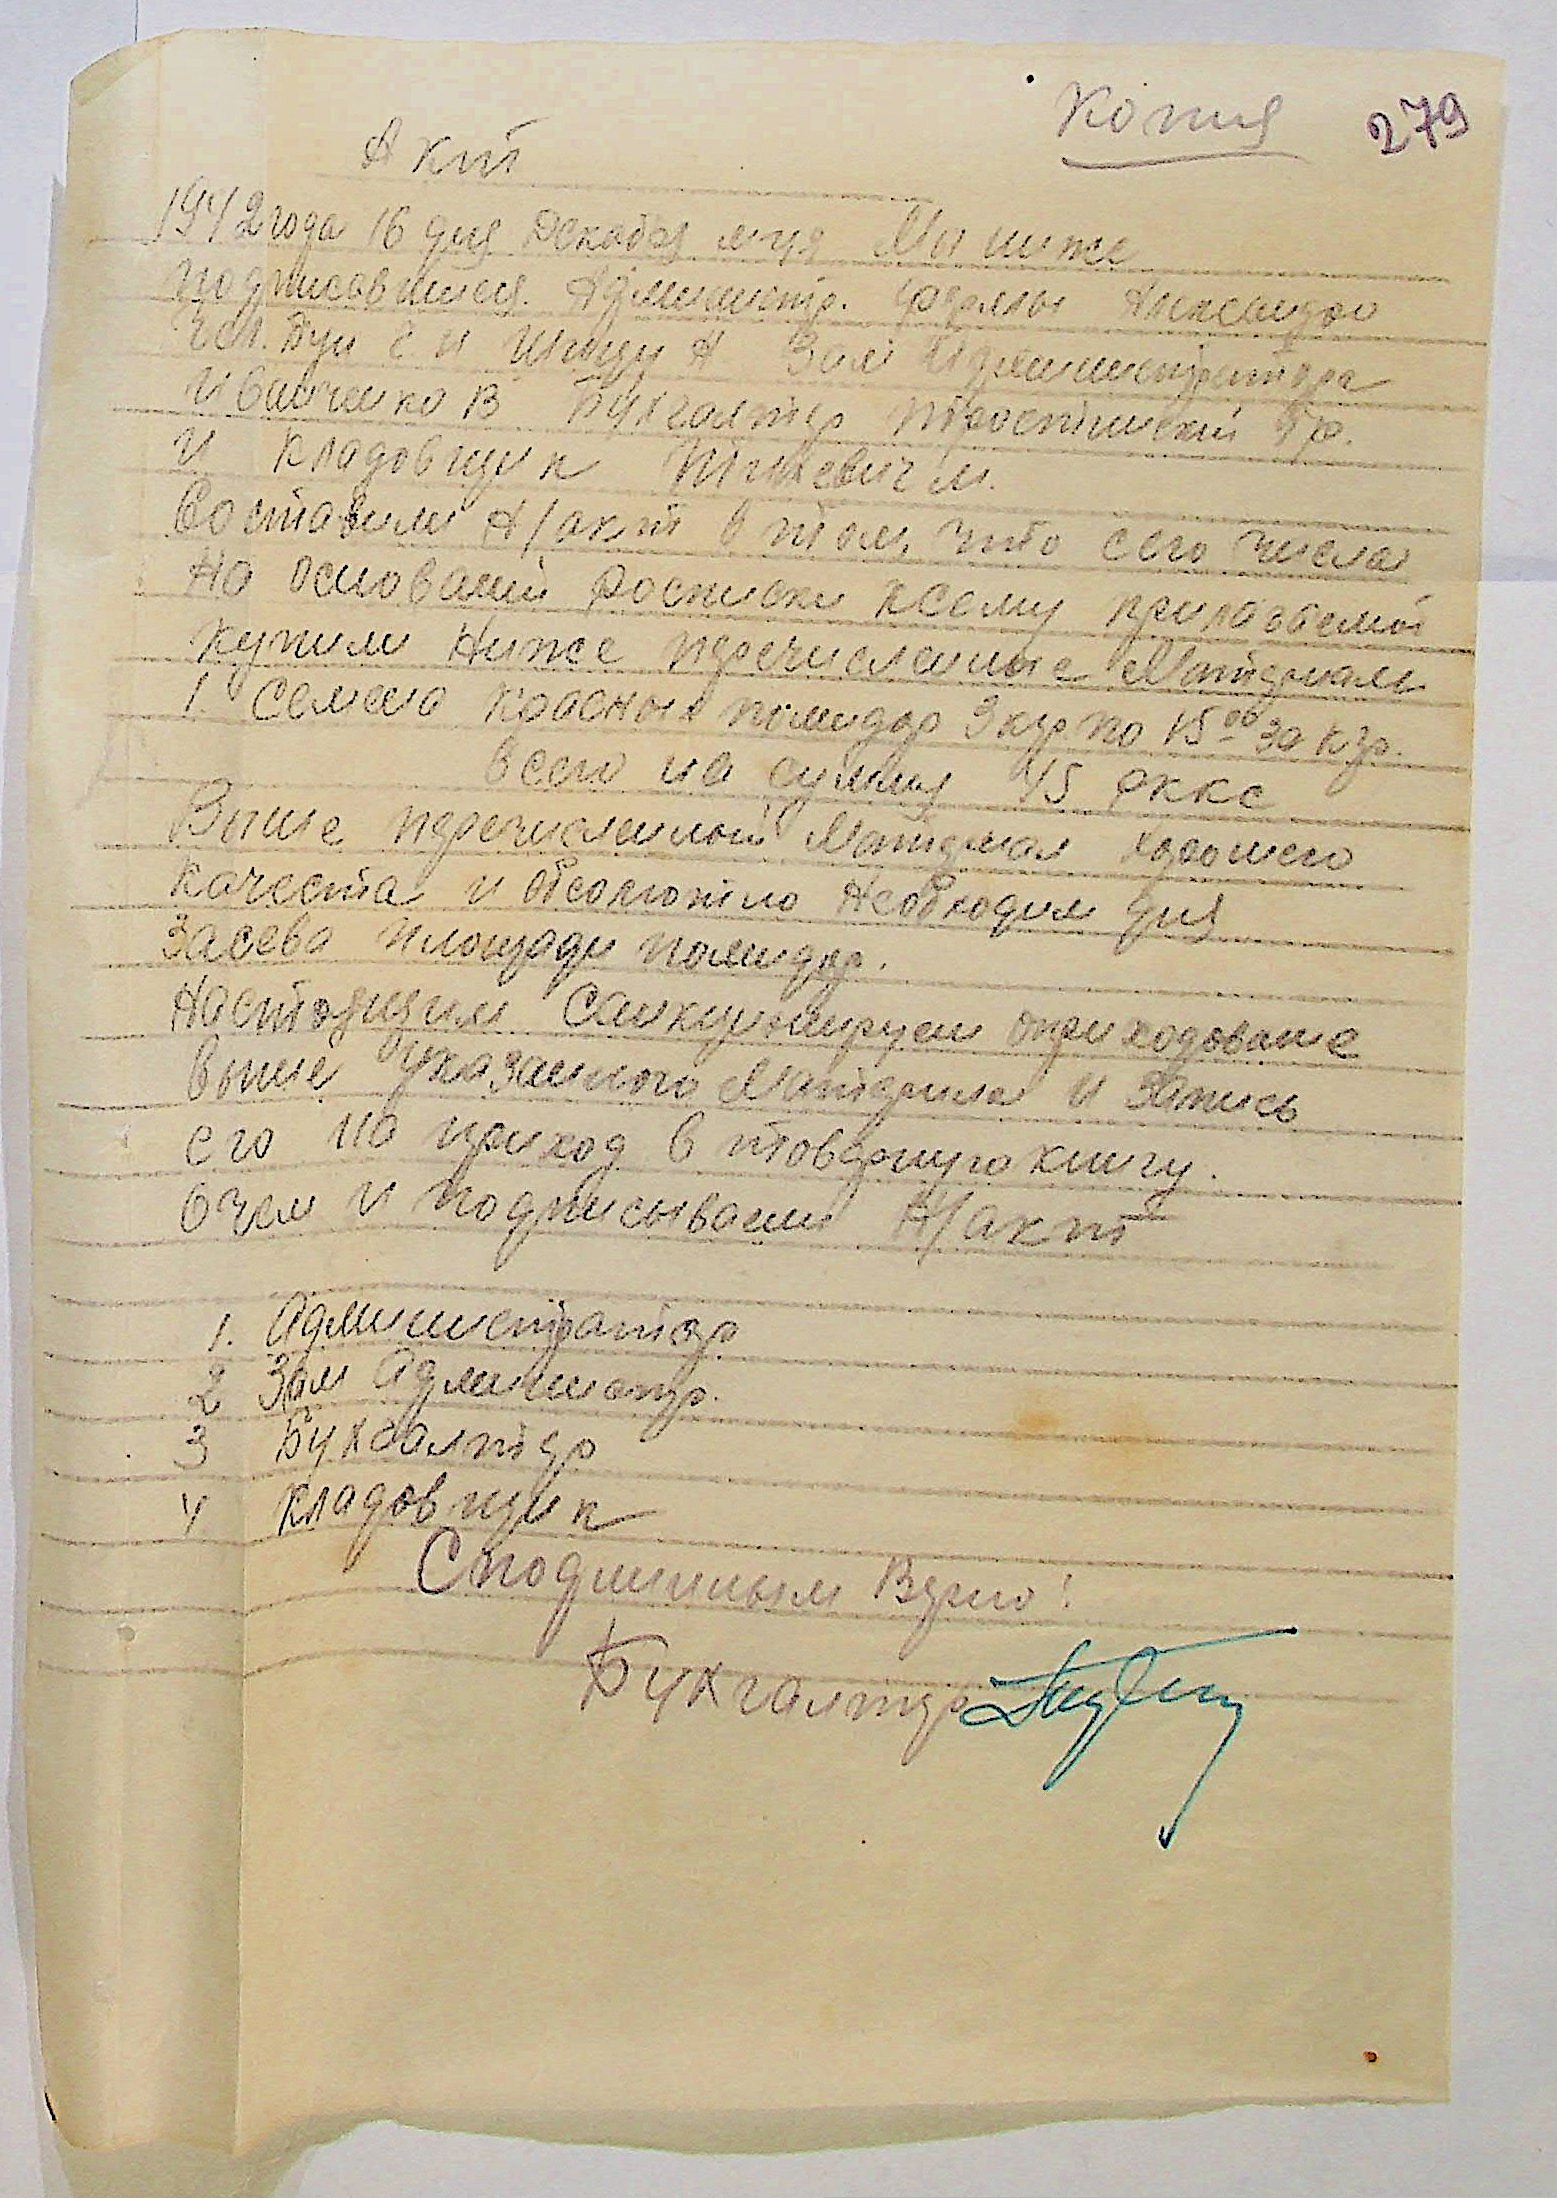 Копия 279
Акт
1942 года 16 дня Декабря м-ця Мы ниже
подписавшиеся Администр. фермы Александро
И Зам Администратора
Иванченко В Бухгалтер Тростинский Гр.
и кладовщик М.
Составили Н/акт в том, что сего числа
На основании росписки ксему прилогаемой
купили Ниже перечисленые Материали
1. Семена Красных помидор 3 кгр по 15 00 за кгр.
всего на сумму 45 рккс
Выше перечисленый Материал хорошего
качеста и обсолютно Необходим для
Засева площади помидор.
Настоящим Санкционируем оприходование
выше Указанного Материала и Запись
его на приход в товарную книгу.
О чем и подписываем Н/акт
1. Администратор
2 Зам Администр.
3 Бухгалтер
4 Кладовщик
С подлинным Верно:
Бухгалтер